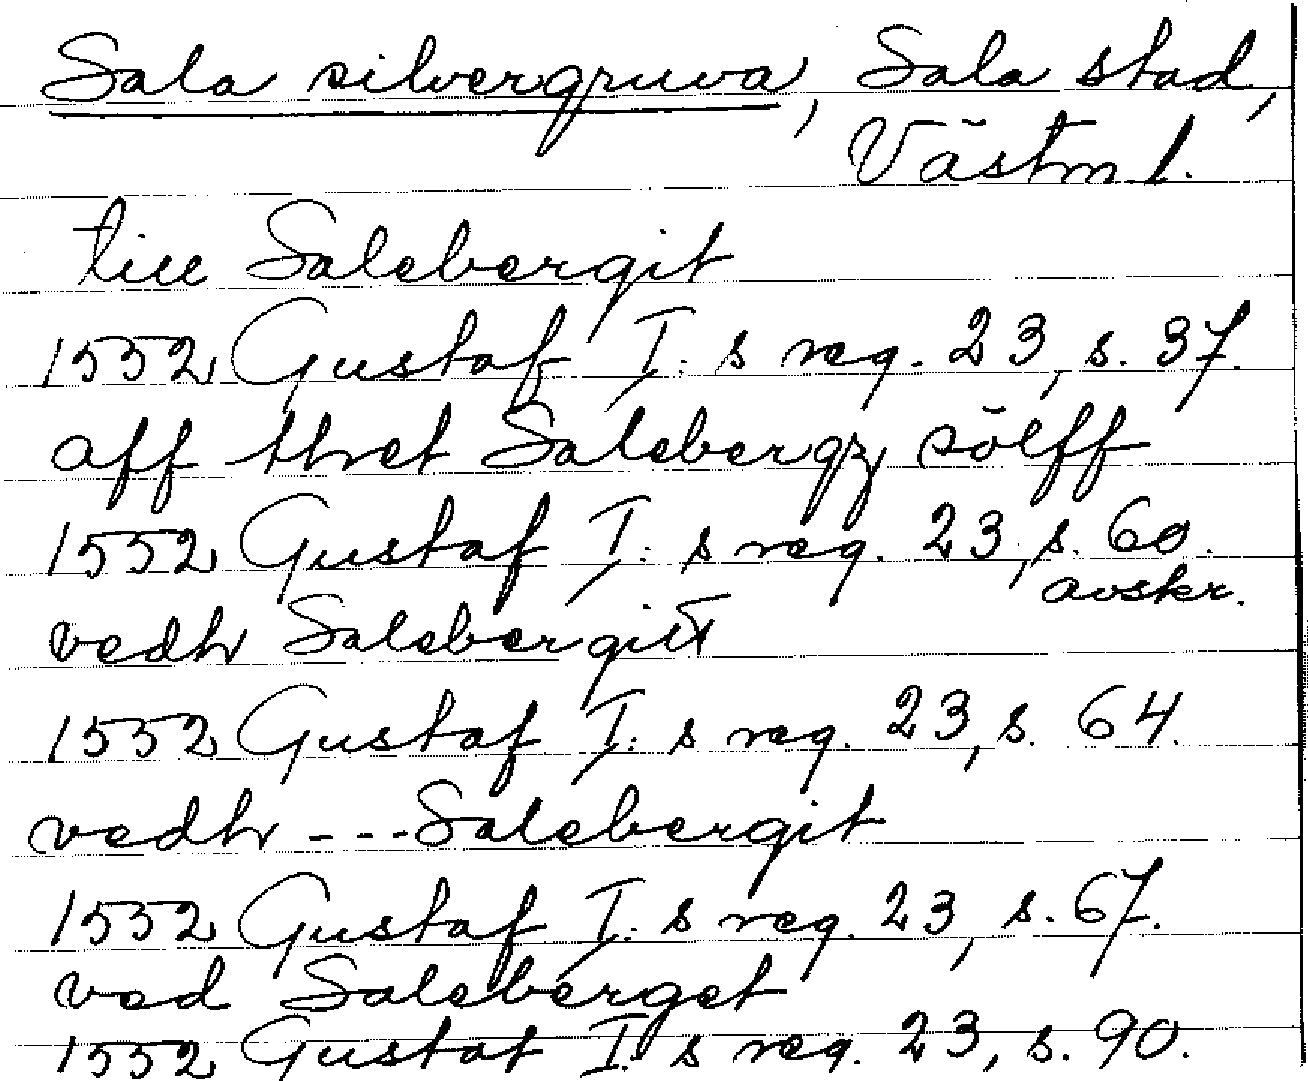 Sala silvergruva, Sala stad,
Västm l.
till Salebergit
1552 Gustaf I:s reg. 23, s. 37.
aff thet Salebergz sölff
1552 Gustaf I:s reg. 23, s. 60.
avskr.
vedh Salebergitt
1552 Gustaf I:s reg. 23, s. 64.
vedh --- Salebergit
1552 Gustaf I:s reg. 23, s. 67.
ved Saleberget
1552 Gustaf I:s reg. 23, s. 90.